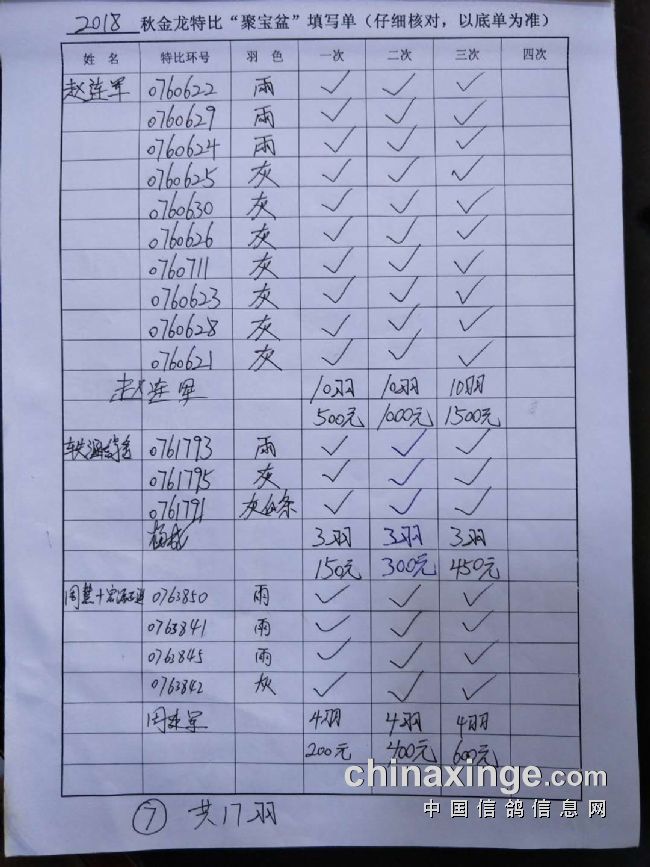 2018 秋金龙特比“聚宝盆”填写单（仔细核对，以底单为准）
姓 名 特比环号 羽 色 一次 二次 三次 四次
赵连军 0760622 雨 ✓ ✓ ✓
0760629 雨 ✓ ✓ ✓
0760624 雨 ✓ ✓ ✓
0760625 灰 ✓ ✓ ✓
0760630 灰 ✓ ✓ ✓
0760626 灰 ✓ ✓ ✓
0760711 灰 ✓ ✓ ✓
0760623 灰 ✓ ✓ ✓
0760628 灰 ✓ ✓ ✓
0760621 灰 ✓ ✓ ✓
赵连军 10羽 10羽 10羽
500元 1000元 1500元
0761793 雨 ✓ ✓ ✓
0761795 灰 ✓ ✓ ✓
0761791 灰白条 ✓ ✓ ✓
3羽 3羽 3羽
150元 300元 450元
0763850 雨 ✓ ✓ ✓
0763841 雨 ✓ ✓ ✓
0763845 雨 ✓ ✓ ✓
0763842 灰 ✓ ✓ ✓
4羽 4羽 4羽
200元 400元 600元
chinaxinge.com
中国信鸽信息网
⑦ 共17羽